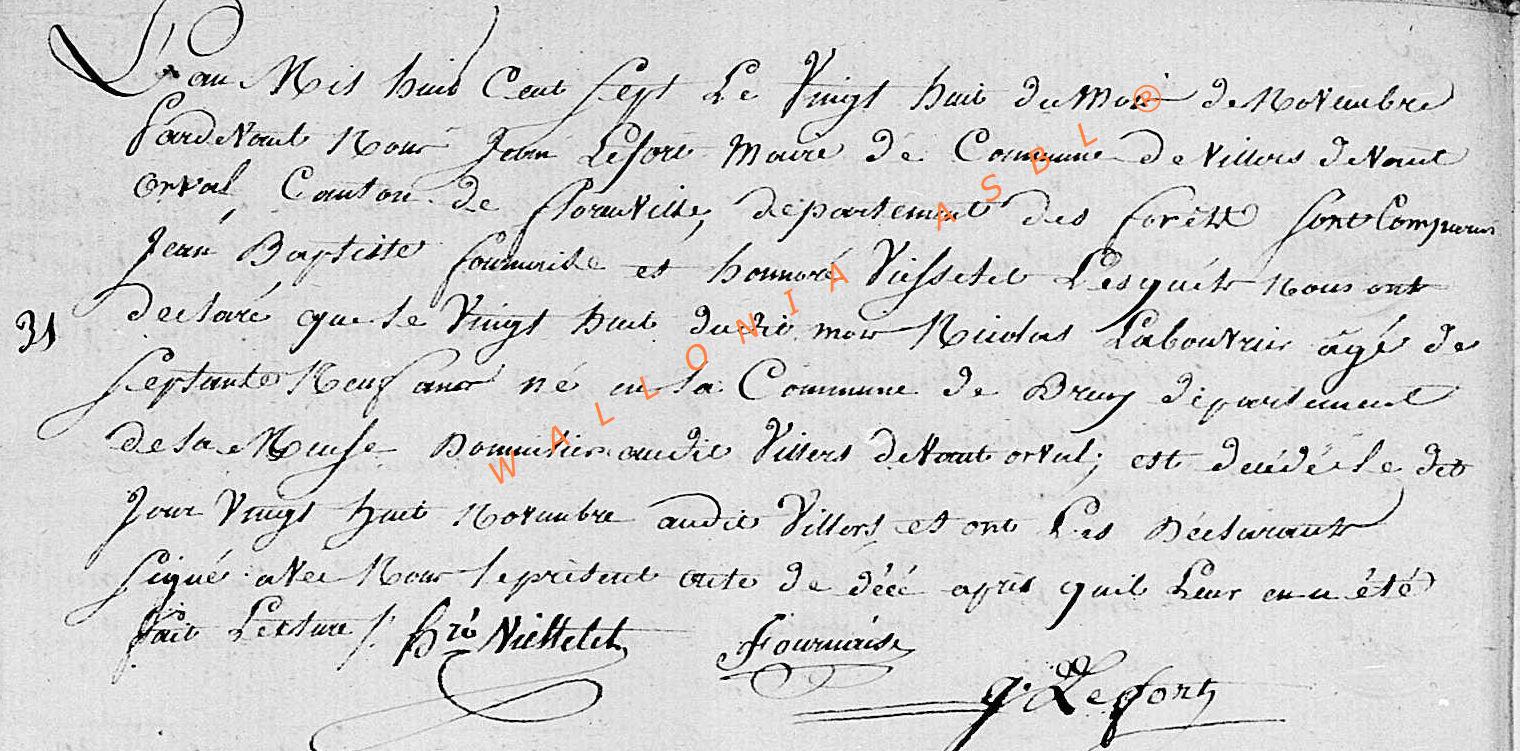 L'an Mil huit Cent Sept Le Vingt huit du Moi de Novembre
Pardevant Nous Jean Lefort Maire de Commune de Villers devant
Orval, Canton de Florenville, département des forêts sont Comparus
Jean Baptiste fournaise et honnoré Viesselet Lesquéls nous ont
declaré que le Vingt huit dudit mois Nicolas Labouvrie âgé de
septante Neuf ans né en la Commune de Breuy département
de la Meuse Domicilier audit Villers devant orval; est décédé le dit
Jour Vingt huit Novembre audit Villers et ont Les Déclarants
Signé avec Nous le présent acte de décé après quil Leur en a été
fait Lecture /.
31
hré Viesselet
Fournaise
J. Lefort
WALLONIA ASBL ®